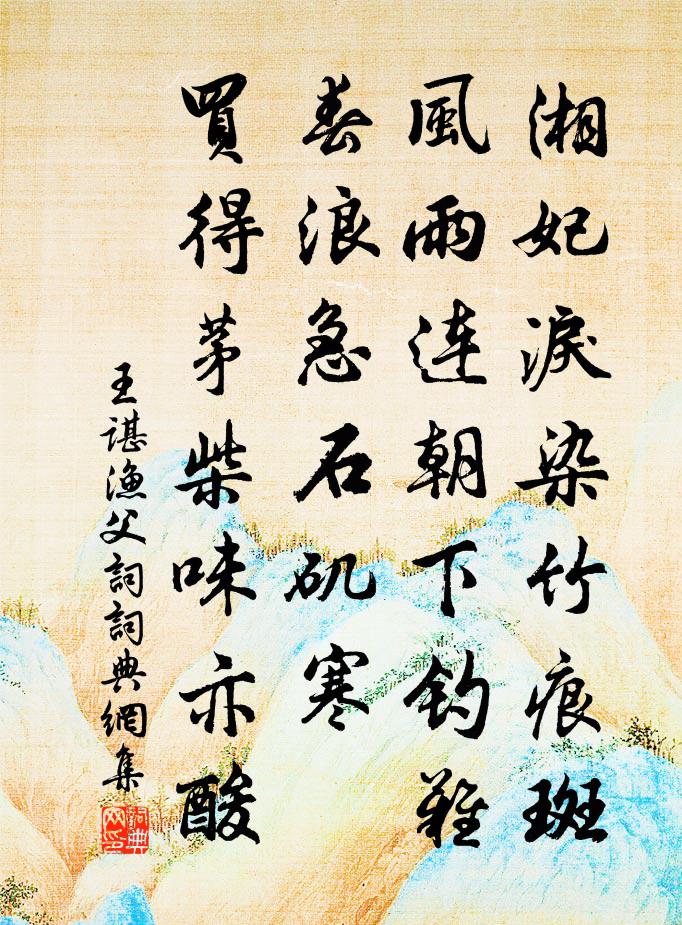 湘妃淚染竹痕斑
風雨連朝下釣難
春浪急石矶寒
買得茅柴味亦酸
王諶漁父詞詞典網集
詞典网印